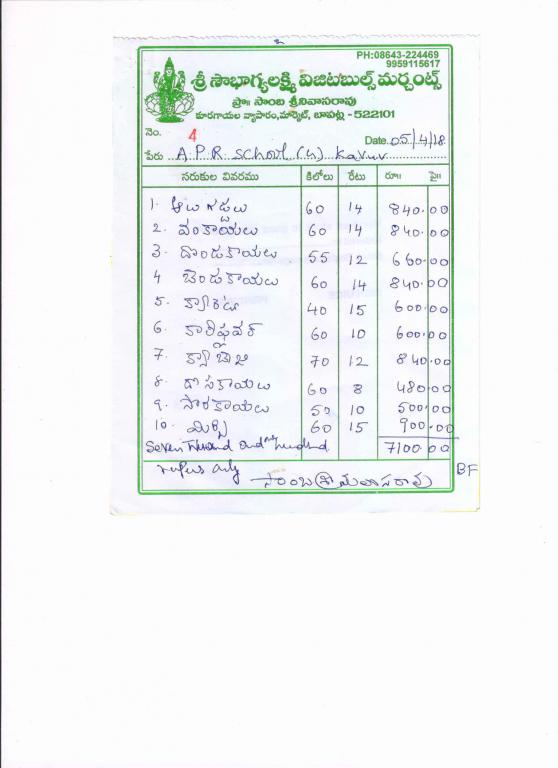 PH:08643-224469
9959115617
శ్రీ సౌభాగ్యలక్ష్మి విజిటబుల్స్ మర్చంట్స్
ప్రొః సాంబ శ్రీనివాసరావు
కూరగాయల వ్యాపారం, మార్కెట్, బాపట్ల - 522101
నెం. 4 Date 05/4/18
పేరు A.P.R. School (G) Kavur
సరుకుల వివరము కిలోలు రేటు రూ॥ పై॥
1. ఆలుగడ్డలు 60 14 840.00
2. వంకాయలు 60 14 840.00
3. దొండకాయలు 55 12 660.00
4 బెండకాయలు 60 14 840.00
5. క్యారెట్ 40 15 600.00
6. కాలిఫ్లవర్ 60 10 600.00
7. క్యాబేజి 70 12 840.00
8. దోసకాయలు 60 8 480.00
9. సొరకాయలు 50 10 500.00
10. మిర్చి 60 15 900.00
Seven Thousand and only hundred 7100.00
rupees only BF
సాంబశ్రీనివాసరావు